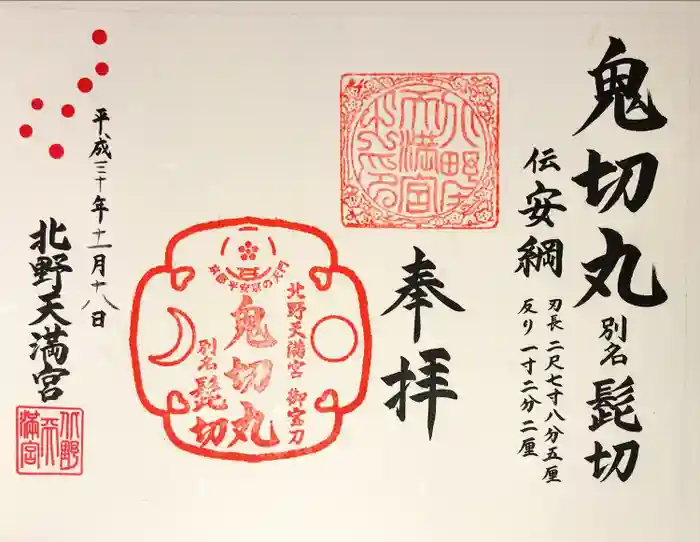 鬼切丸 別名 髭切
伝 安綱
刃長 二尺七寸八分五厘
反り 一寸二分二厘
奉拝
北野天満宮 御宝刀
鬼切丸
別名 髭切
平成三十年十一月十八日
北野天満宮
北野天満宮